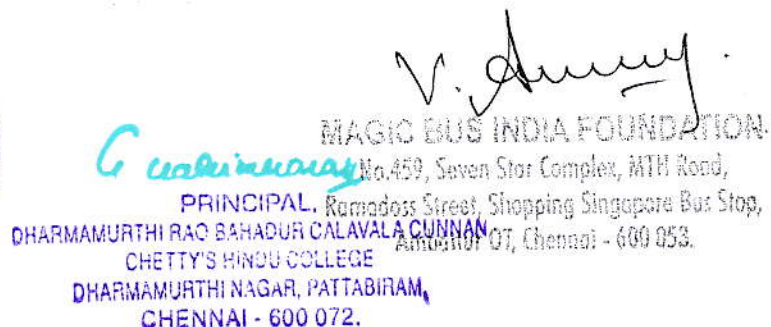 V.
MAGIC BUS INDIA FOUNDATION.
No.459, Seven Star Complex, MTH Road,
Ramadoss Street, Shopping Singapore Bus Stop,
Ambattur OT, Chennai - 600 053.
G
PRINCIPAL.
DHARMAMURTHI RAO BAHADUR CALAVALA CUNNAN
CHETTY'S HINDU COLLEGE
DHARMAMURTHI NAGAR, PATTABIRAM,
CHENNAI - 600 072.